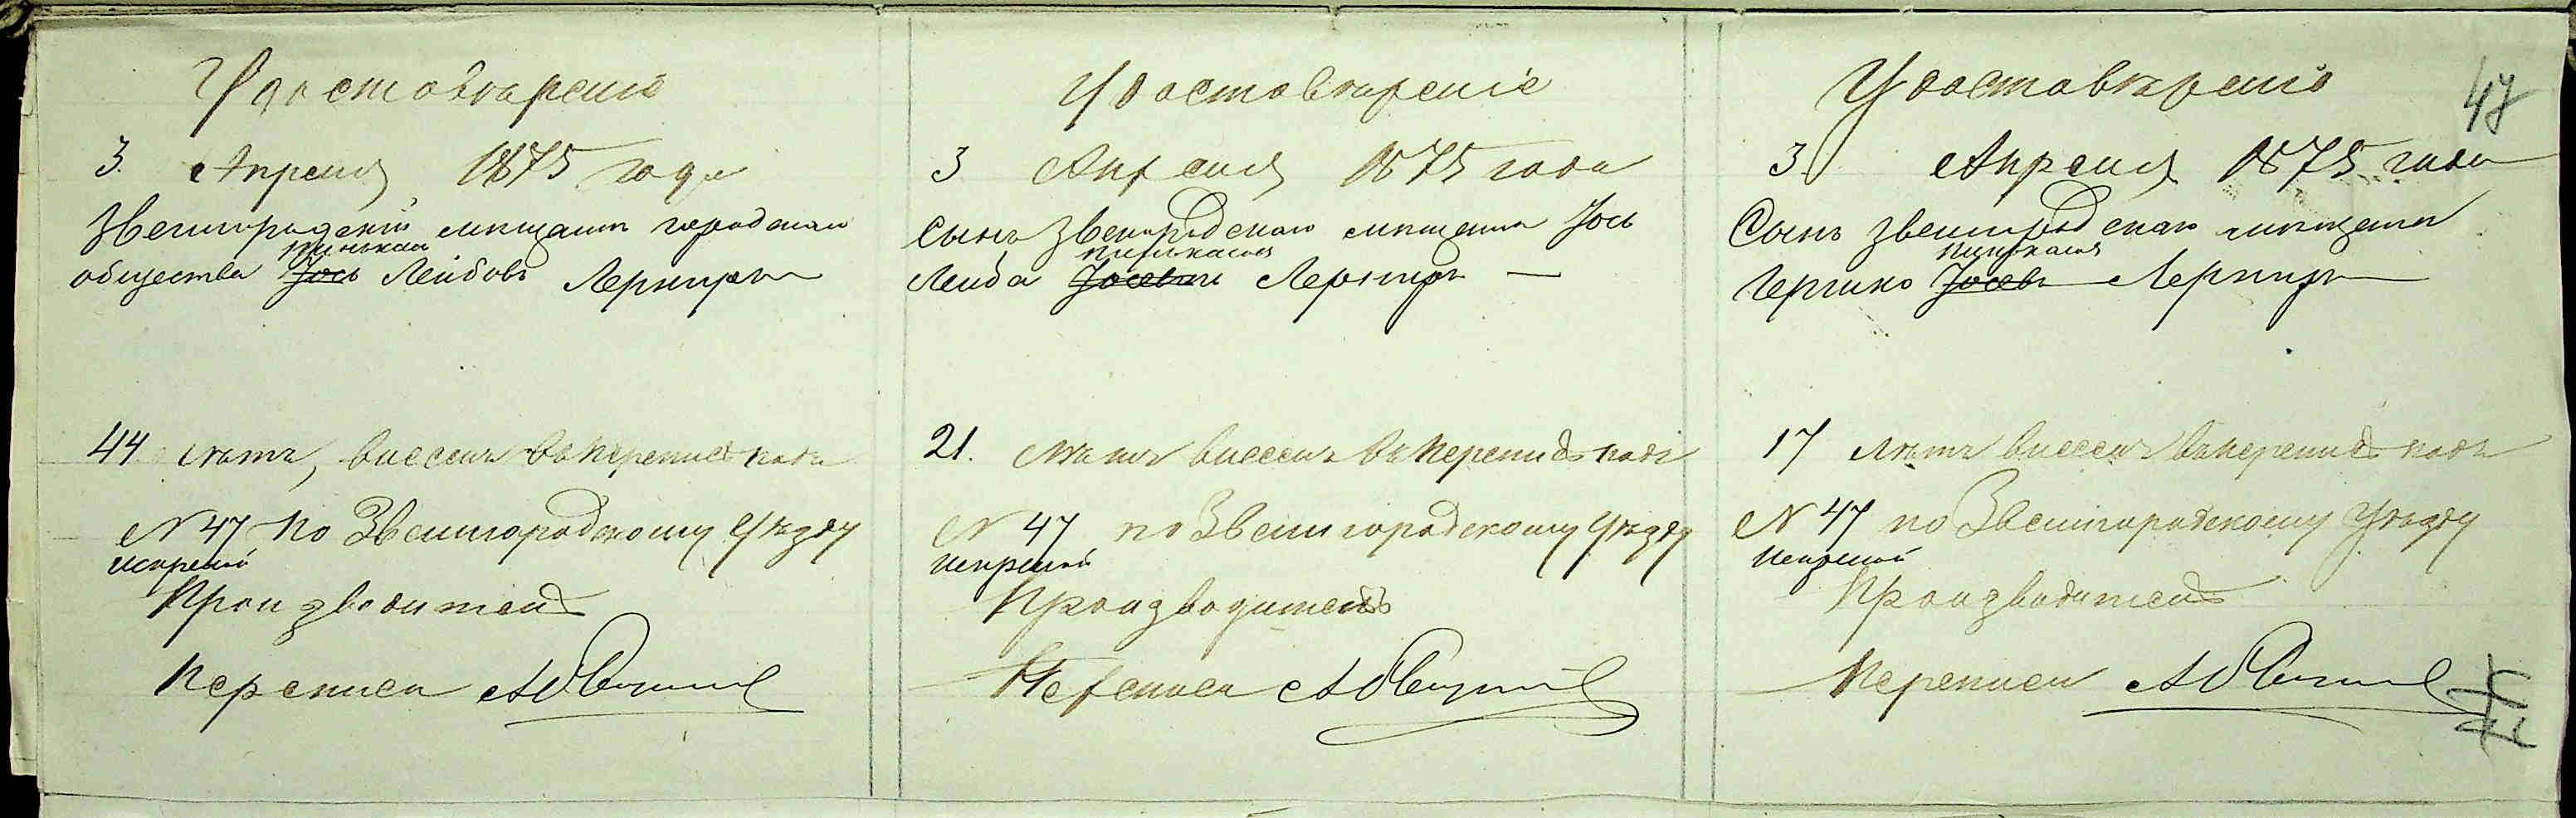 Удостовѣреніе
3. Апреля 1875 года
Звенигородскій мещанинъ городскаго
Пинькас
общества Іось Лейбовъ Лернеръ
44 летъ, внесенъ въ перепись подъ
N 47 по Звенигородскому Уѣзду
искреній
Производитель
Переписи
Удостовѣреніе
3 Апреля 1875 года
Сынъ Звенигородскаго мещанина Іось
Пинькасов
Лейба Іосевъ Лернеръ —
21. летъ внесенъ въ перепись подъ
N 47 по Звенигородскому Уѣзду
Производитель
Переписи
47
Удостовѣреніе
3 Апреля 1875 года
Сынъ Звенигородскаго мещанина
Пинькасов
Гершко Іосевъ Лернеръ
17 летъ внесенъ въ перепись подъ
N 47 по Звенигородскому Уѣзду
Производитель
Переписи